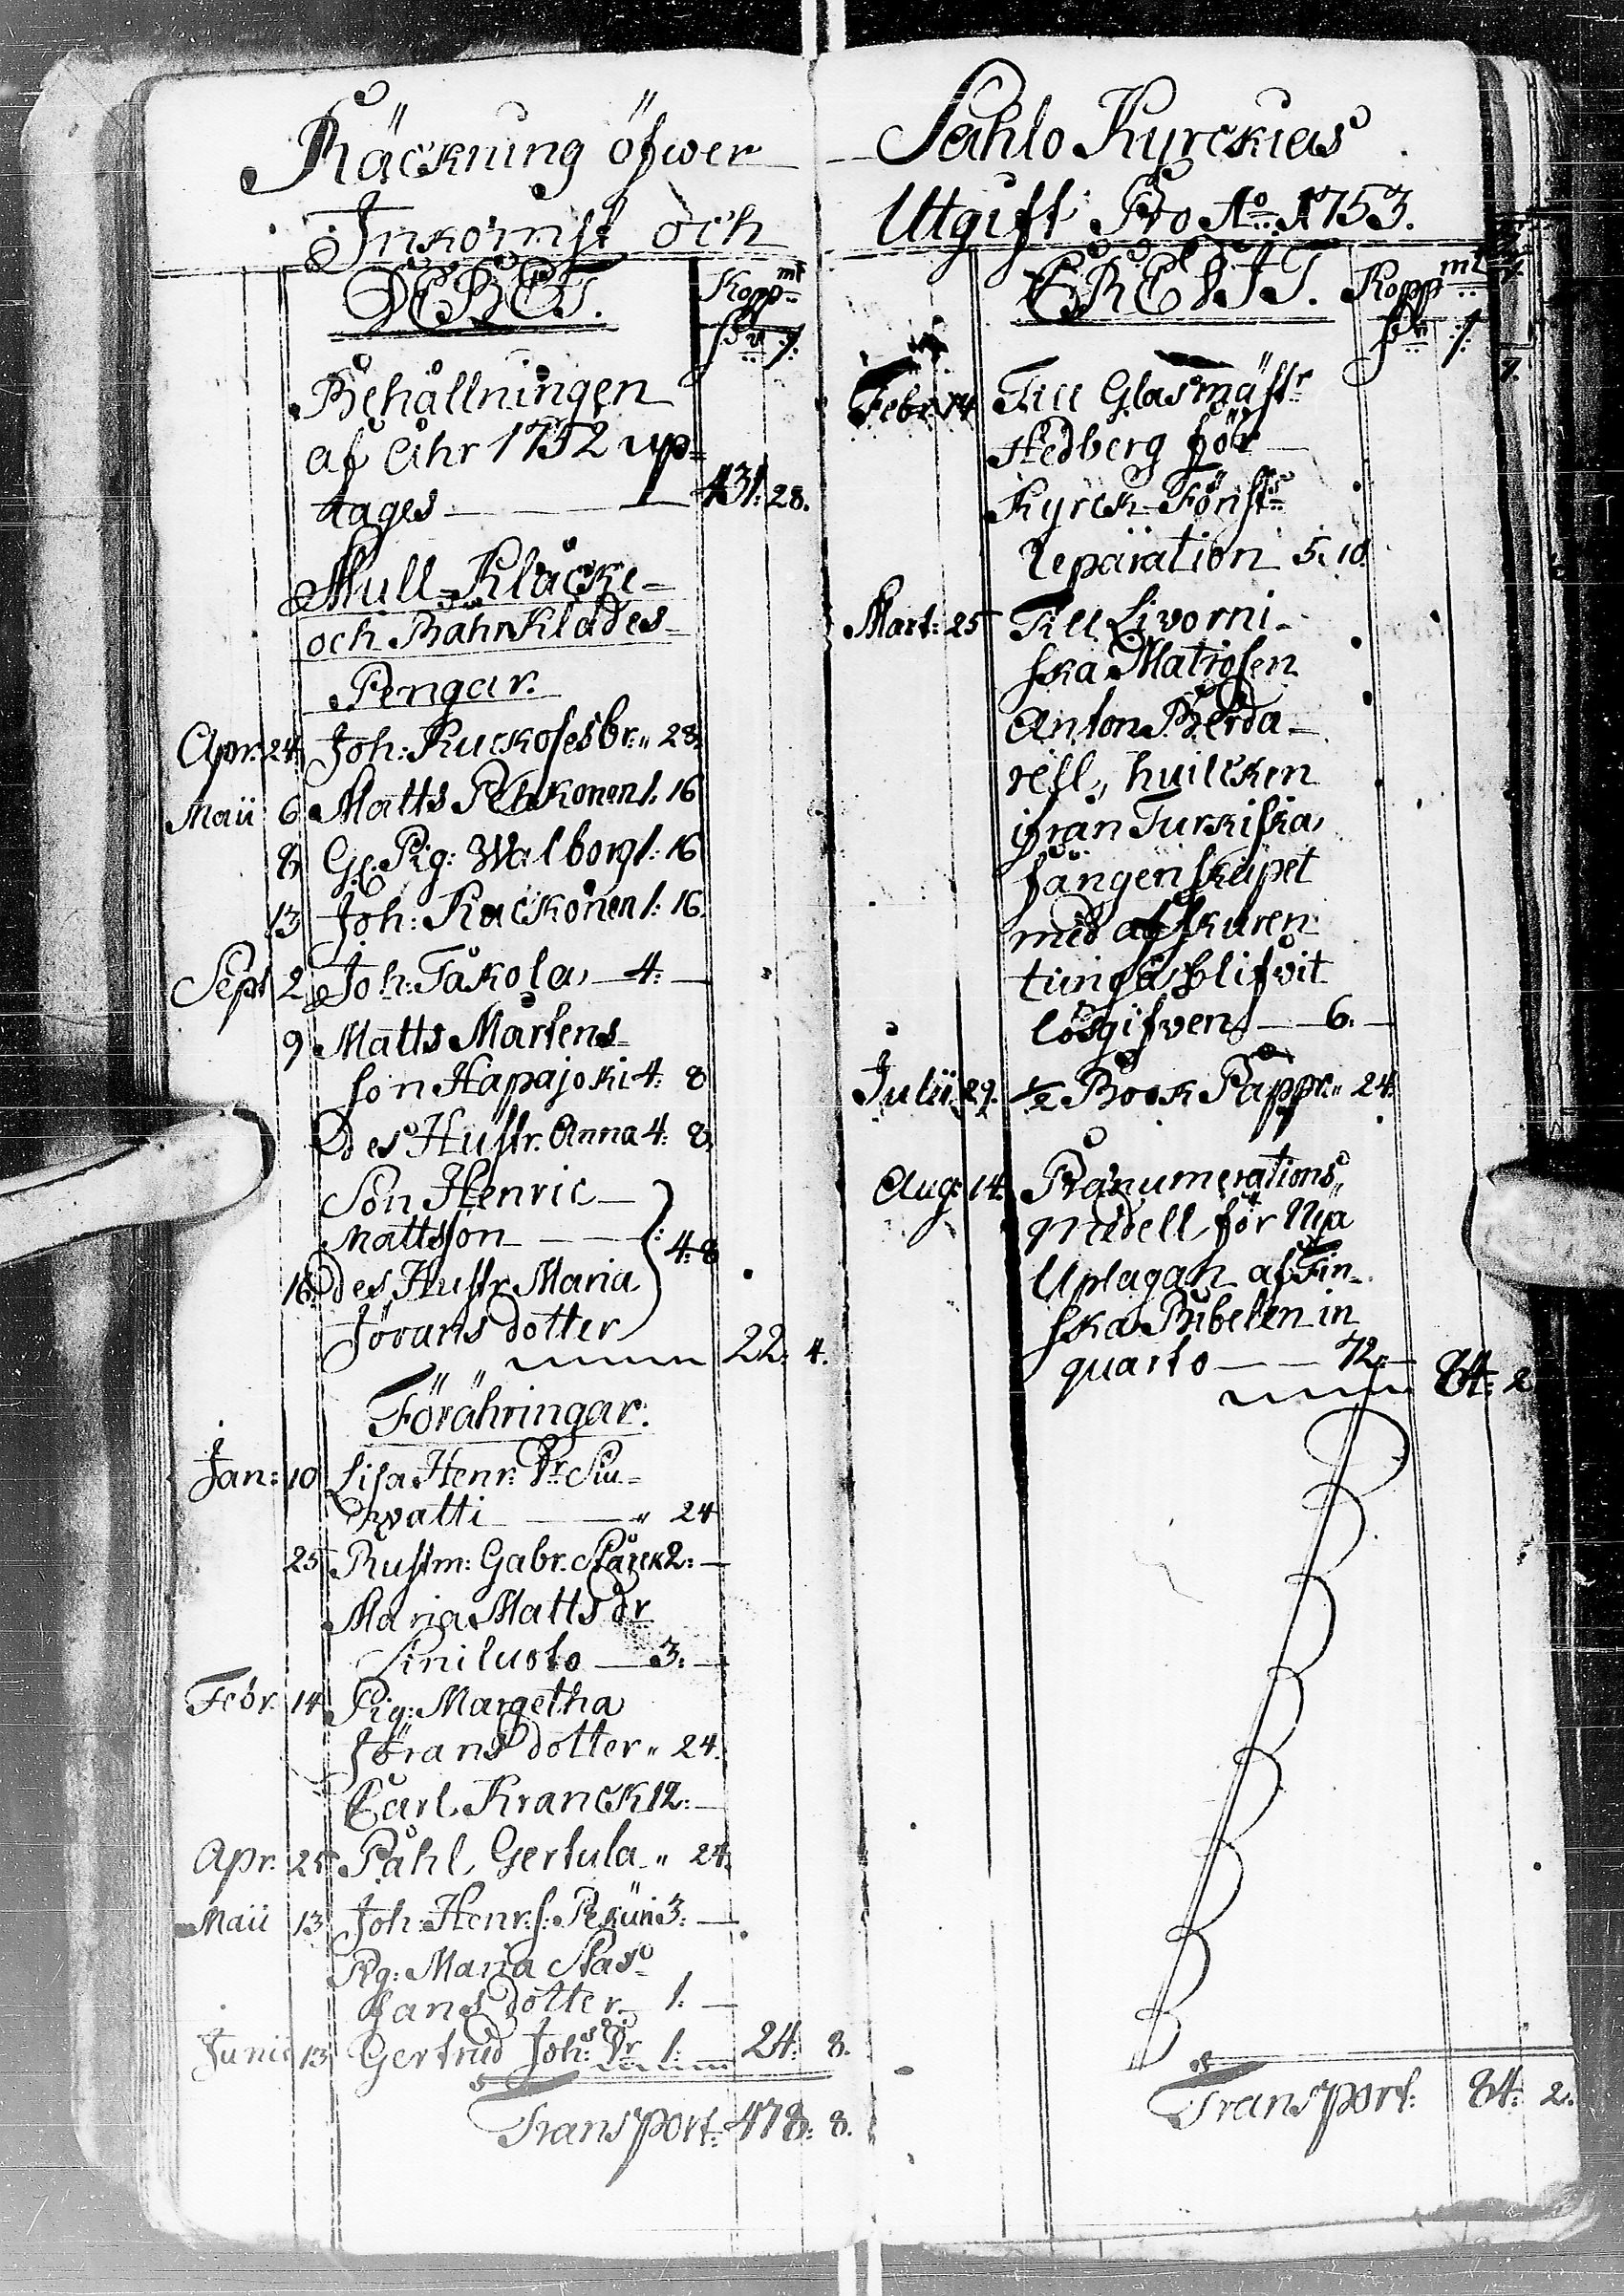 Räckning öfwer
Inkomst och
DEBET.
Koppmt
dr /:
Behållningen
af åhr 1752 up=
tages — 431: 28.
Mull-Kläcke-
och Båhrklädes-
Pengar.
Apr. 24. Joh: Kuckofesbr: " 28.
Maii 6 Matts Pehkonen 1: 16
8 Gl. Pig: Walborg 1: 16
13 Joh: Kackonen 1: 16.
Sept 2 Joh: Tåkola 4: —
9 Matts Mårtens-
son Hapajoki 4: 8
Des Hustr. Anna 4: 8
Son Henric
Mattsson — 4: 8
16. Des Hustr. Maria
Jörans dotter
22: 4.
Förähringar.
Jan: 10 Lisa Henr: Dr
watti — " 24
25 Rustm: Gabr. Stårck 2: —
Maria Matts dr
Siniluoto — 3: —
Febr. 14 Pig: Margetha
Jörans dotter " 24.
Carl Kranck 12: —
Apr. 25 Påhl Gertula " 24.
Maii 13 Joh: Henr: s: Pekuri 3: —
Pig: Maria Stas-
fans dotter 1: —
Junii 13 Gertrud Joh: Dr 1: — 24: 8.
Transport: 478: 8.
Sahlo Kyrckias
Utgift Pro Ao 1753.
CREDIT.
Koppmt
dr /:
Febr. 14 Till Glasmästr
Hedberg för
Kyrck-Fönstr
reparation 5: 10.
Mart: 25 Till Livorni-
ska Matrosen
Anton Berda-
rell, huilcken
ifrån Turkiska
fångenskapet
med afskuren
tunga blifvit
lösgifven — 6. —
Julii 29. ½ Book Papp: " 24.
Aug: 14. Prænumerations
medell för Nya
Uplagan af Fin-
ska Bibelen in
quarto — 72: —
84: 2
Transport: 84: 2.